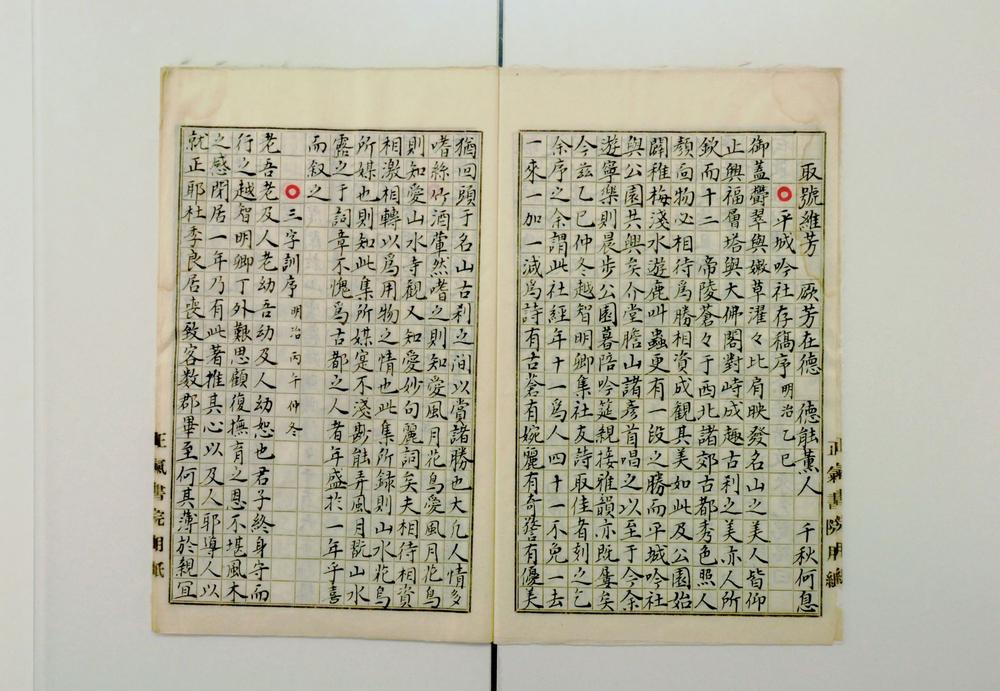 取號維芳 厥芳在德 德能薰人 千秋何息
平城吟社存稿序 明治乙巳
御蓋欝翠與嫩草濯々比肩映發名山之美人皆仰
止興福層塔與大佛閣對峙成趣古刹之美亦人所
欽而十二帝陵蒼々于西北諸郊古都秀色照人
顏向物必相待爲勝相資成觀其美如此及公園始
闢稚梅淺水遊鹿叫蟲更有一段之勝而平城吟社
與公園共興矣介堂膽山諸彥首唱之以至于今余
遊寧樂則晨步公園暮陪吟筵親接雅韻亦既屢矣
今茲乙巳仲冬越智明卿集社友詩取佳者刻之乞
余序之余謂此社經年十一爲人四十一不免一去
一來一加一減爲詩有古蒼有婉麗有奇警有優美
猶回頭于名山古刹之間以當諸勝也大凡人情多
嗜絲竹酒葷然嗜之則知愛風月花鳥愛風月花鳥
則知愛山水寺觀又知愛妙句麗詞矣夫相待相資
相激相轉以爲用物之情也此集所録則山水花鳥
所媒也則知此集所媒寔不淺尠能弄風月既山水
露之于詞章不愧爲古都之人者年盛於一年乎喜
而叙之
三字訓序 明治丙午仲冬
老吾老及人老幼吾幼及人幼恕也君子終身守而
行之越智明卿丁外艱思顧復撫育之恩不堪風木
之感閉居一年乃有此著推其心以及人耶導人以
就正耶杜季良居喪致客數郡畢至何其薄於親宜
正氣書院用紙
正氣書院用紙